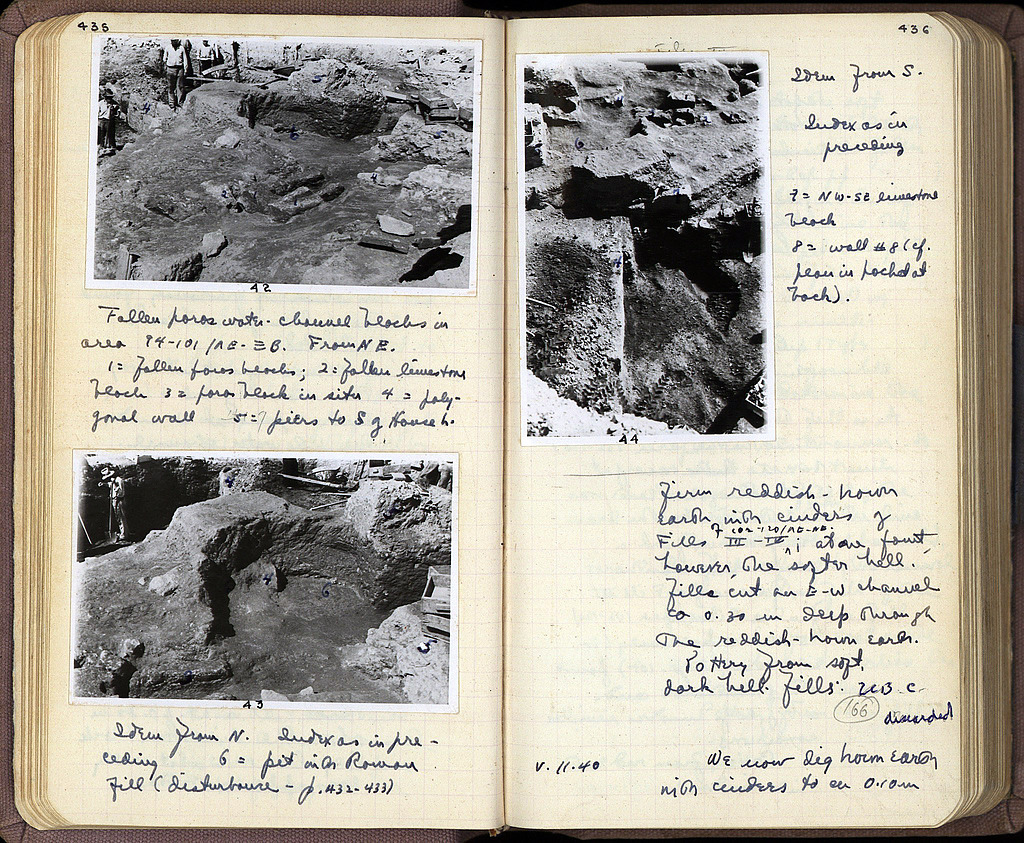 435
42
Fallen poros water-channel blocks in
area 94-101/ΛE-ΞB. From NE.
1= fallen poros blocks; 2= fallen limestone
block 3= poros block in situ 4 = poly-
gonal wall 5= piers to S of House h.
43
Idem from N. Index as in pre-
ceding 6 = pit with Roman
fill (disturbance - p. 432-433)
436
Idem from S.
Index as in
preceding
7= NW-SE limestone
block
8= wall #8 (cf.
plan in pocket at
back).
44
Firm reddish-brown
earth with cinders of
102-120/
Fills III-IV; above fount.
however, the softer hell.
fills cut an E-W channel
ca 0.30 m deep through
the reddish-brown earth.
Pottery from soft,
dark hell. fills: B.C.
166 discarded
V.11.40 We now dig brown earth
with cinders to ca 0.10 m